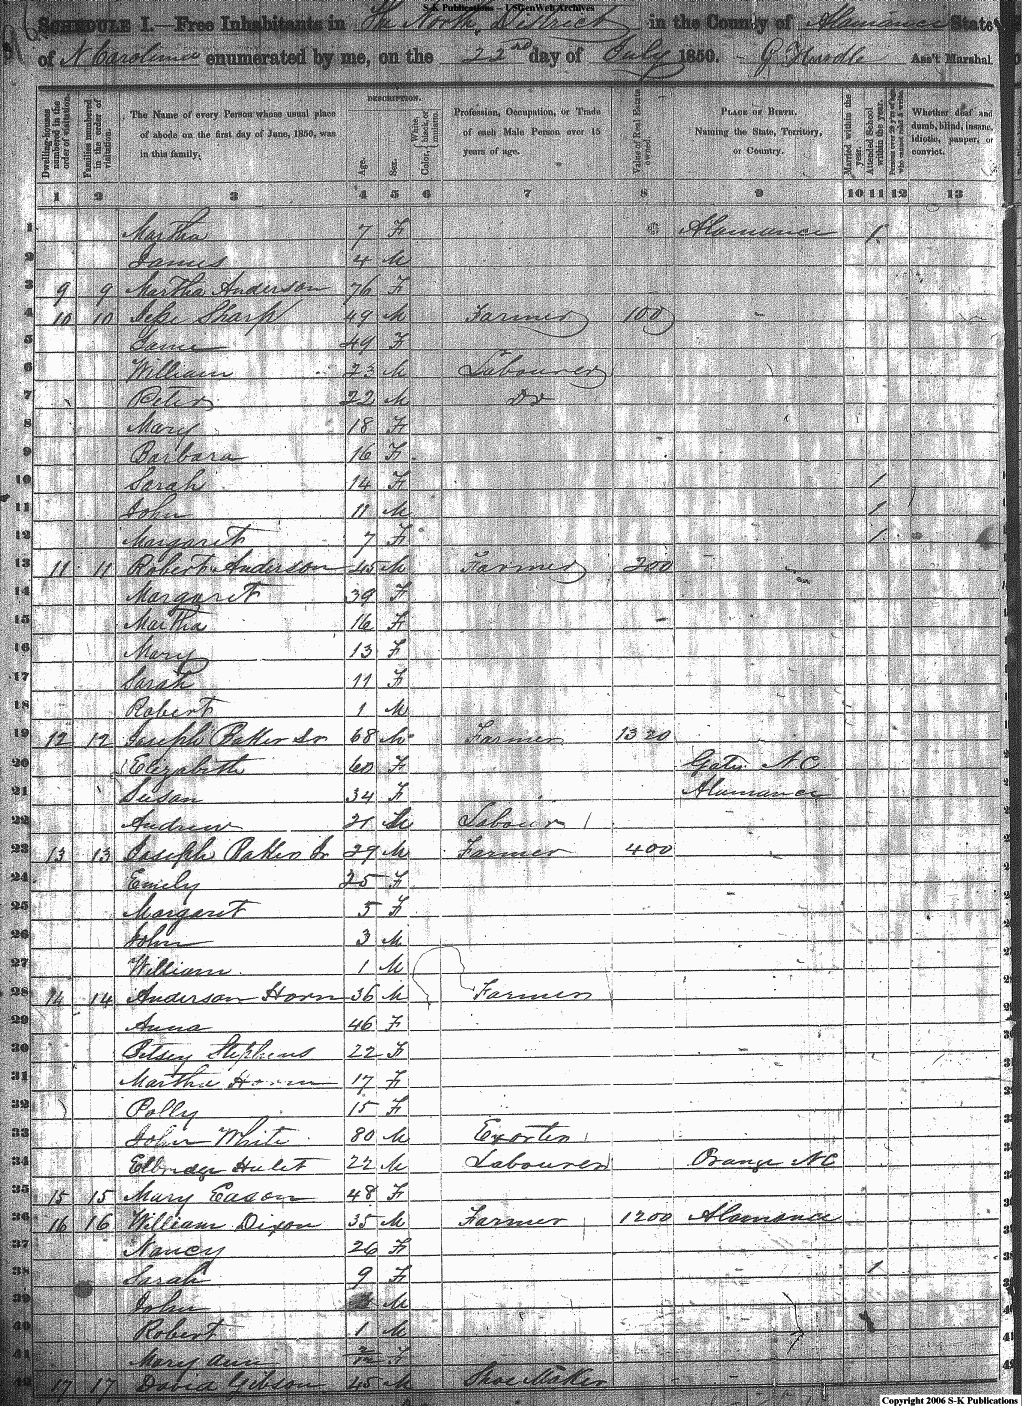 S-K Publications – USGenWeb Archives
SCHEDULE I.—Free Inhabitants in The North District in the County of Alamance State
of N Carolina enumerated by me, on the 22nd day of July 1850. Ass't Marshal.
Dwelling-houses numbered in the order of visitation.
Families numbered in the order of visitation.
The Name of every Person whose usual place of abode on the first day of June, 1850, was in this family.
DESCRIPTION.
Age.
Sex.
Color, White, black, or mulatto.
Profession, Occupation, or Trade of each Male Person over 15 years of age.
Value of Real Estate owned.
PLACE OF BIRTH. Naming the State, Territory, or Country.
Married within the year.
Attended School within the year.
Persons over 20 y'rs of age who cannot read & write.
Whether deaf and dumb, blind, insane, idiotic, pauper, or convict.
1 2 3 4 5 6 7 8 9 10 11 12 13
1 Martha 7 F Alamance 1
2 James 4 M
3 9 9 Martha Anderson 76 F
4 10 10 Sharp 49 M Farmer 100
5 49 F
6 William 23 M Labourer
7 Peter 22 M Do
8 Mary 18 F
9 Barbara 16 F
10 Sarah 14 F 1
11 John 11 M 1
12 Margaret 7 F 1
13 11 11 Robert Anderson 45 M Farmer 200
14 Margaret 39 F
15 Martha 16 F
16 Mary 13 F
17 Sarah 11 F
18 Robert 1 M
19 12 12 Joseph Sr 68 M Farmer 1320
20 Elizabeth 60 F Gates NC
21 Susan 34 F Alamance
22 Andrew 21 M Labour
23 13 13 Joseph Jr 29 M Farmer 400
24 Emily 25 F
25 Margaret 5 F
26 John 3 M
27 William 1 M
28 14 14 Anderson Horn 36 M Farmer
29 Anna 46 F
30 Betsey Stephens 22 F
31 Martha Horn 17 F
32 Polly 15 F
33 John White 80 M
34 Hulet 22 M Labourer Orange NC
35 15 15 Mary Eason 48 F
36 16 16 William Dixon 35 M Farmer 1200 Alamance
37 Nancy 26 F
38 Sarah 9 F 1
39 John M
40 Robert 1 M
41 Mary Ann F
42 17 17 David Gibson 45 M Shoe Maker
Copyright 2006 S-K Publications